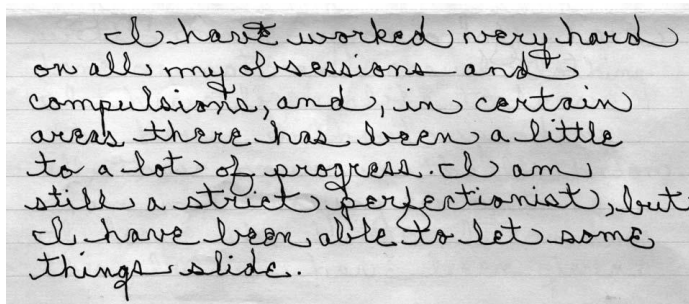 I have worked very hard
on all my obsessions and
compulsions, and, in certain
areas there has been a little
to a lot of progress. I am
still a strict perfectionist, but
I have been able to let some
things slide.